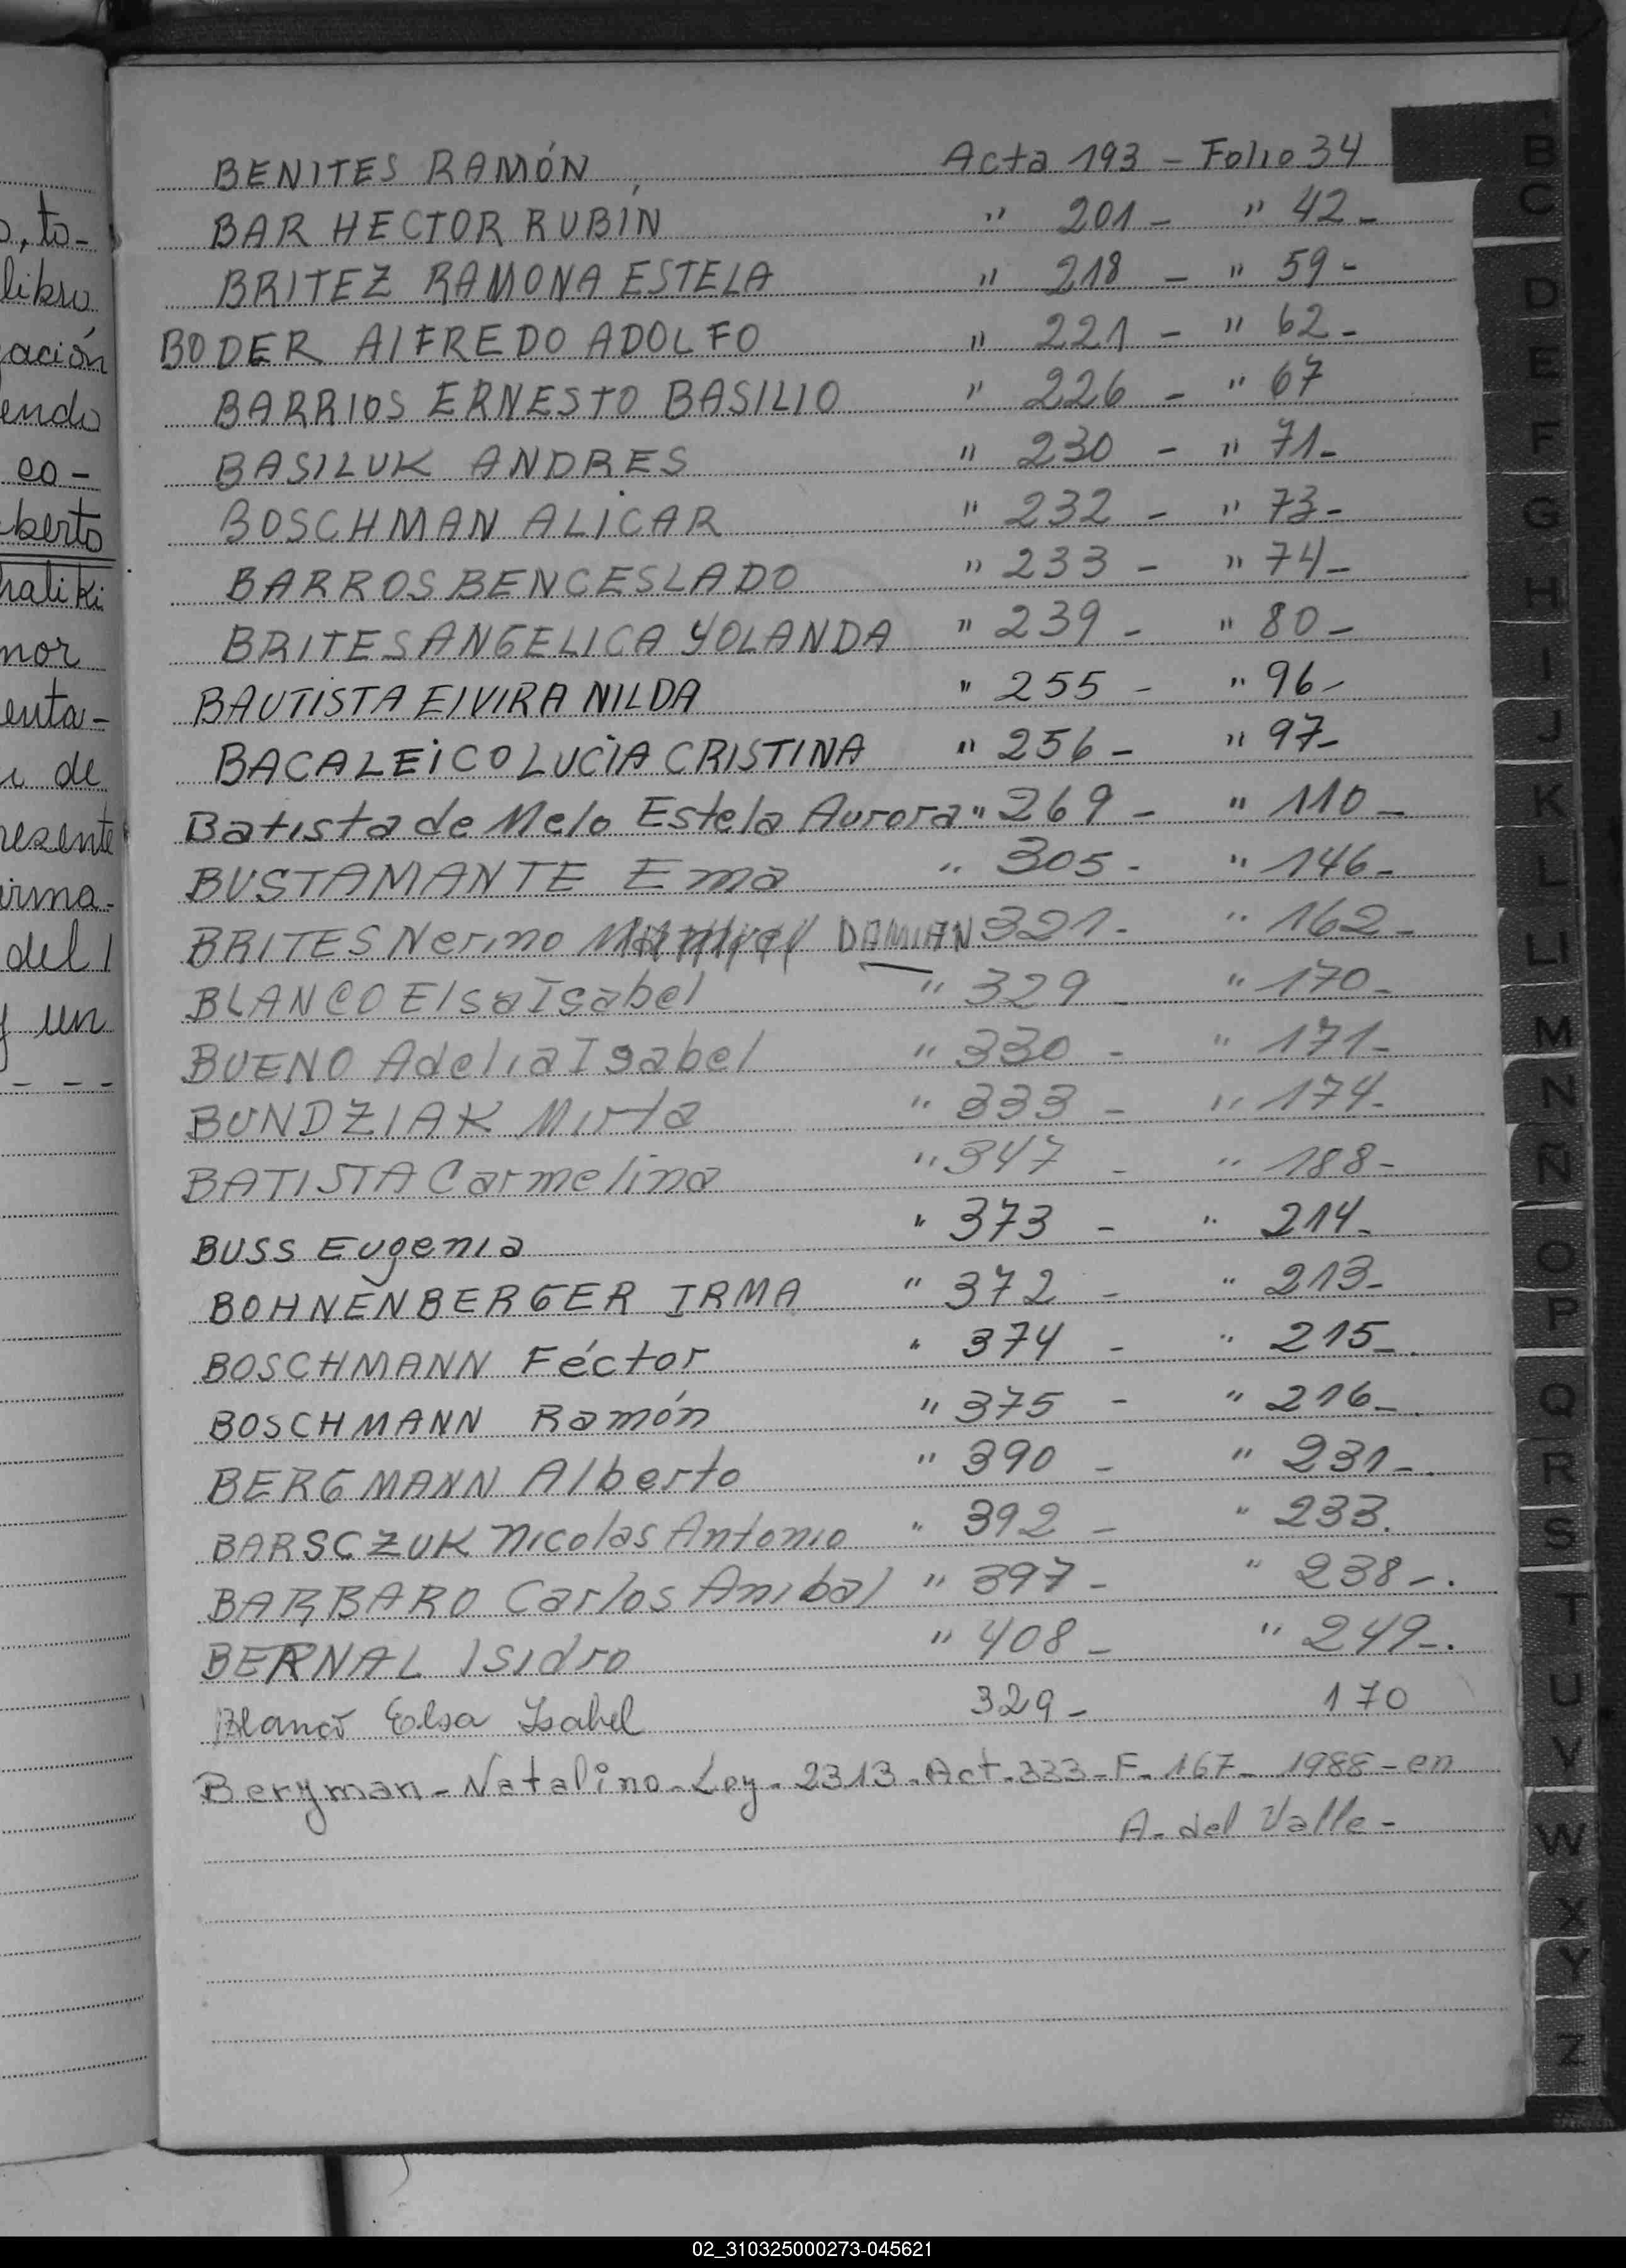 o, to-
libro
ación
endo
co-
berto
haliki
nor
enta-
de
resente
irma-
del 1
y un
- - -
BENITES RAMÓN Acta 193 - Folio 34
BAR HECTOR RUBIN " 201 - " 42 -
BRITEZ RAMONA ESTELA " 218 - " 59 -
BODER AlFREDO ADOLFO " 221 - " 62 -
BARRIOS ERNESTO BASILIO " 226 - " 67
BASILUK ANDRES " 230 - " 71 -
BOSCHMAN ALICAR " 232 - " 73 -
BARROS BENCESLADO " 233 - " 74 -
BRITES ANGELICA YOLANDA " 239 - " 80 -
BAUTISTA ElVIRA NILDA " 255 - " 96 -
BACALEICO LUCIA CRISTINA " 256 - " 97 -
Batista de Melo Estela Aurora " 269 - " 110 -
BUSTAMANTE Ema " 305 - " 146 -
BRITES Nerino DAMIAN 321 - " 162 -
BLANCO Elsa Isabel " 329 - " 170 -
BUENO Adelia Isabel " 330 - " 171 -
BUNDZIAK Mirta " 333 - " 174 -
BATISTA Carmelina " 347 - " 188 -
BUSS Eugenia " 373 - " 214 -
BOHNENBERGER IRMA " 372 - " 213 -
BOSCHMANN Féctor " 374 - " 215 -
BOSCHMANN Ramón " 375 - " 216 -
BERGMANN Alberto " 390 - " 231 -
BARSCZUK Nicolas Antonio " 392 - " 233.
BARBARO Carlos Anibal " 397 - " 238 -.
BERNAL Isidro " 408 - " 249 -.
Blanco Elsa Isabel 329 - 170
Bergman - Natalino - Ley - 2313 - Act - 333 - F - 167 - 1988 - en
A - del Valle -
B
C
D
E
F
G
H
I
J
K
L
LL
M
N
Ñ
O
P
Q
R
S
T
U
V
W
X
Y
Z
02_310325000273-045621